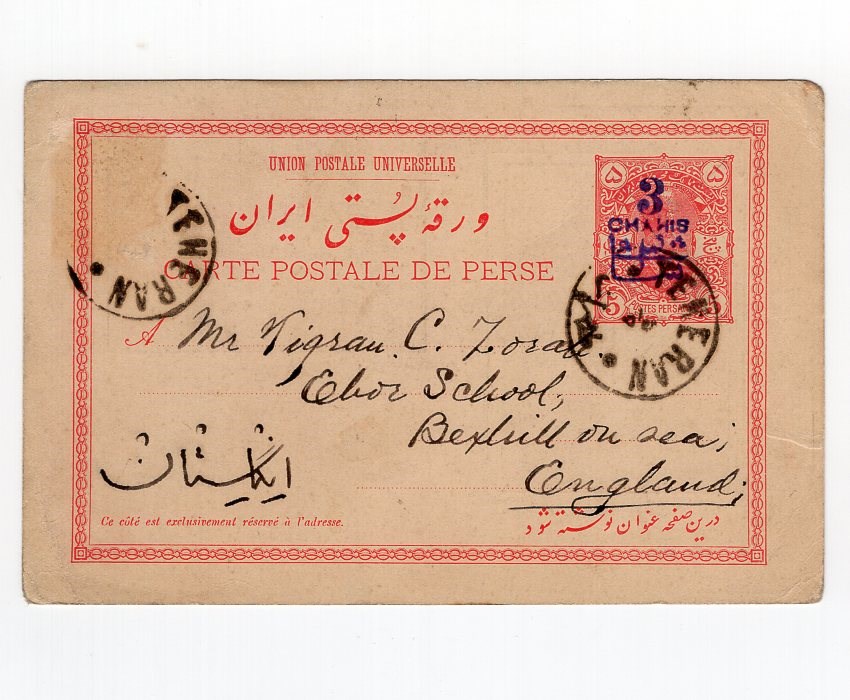 UNION POSTALE UNIVERSELLE
ورقهٔ پُستی ایران
CARTE POSTALE DE PERSE
۵ ۵
3
CHAHIS
5
TEHERAN
TEHERAN
A Mr Tigran C. Zorab.
Ebor School,
Bexhill on sea;
England;
انگلستان
Ce côté est exclusivement réservé à l'adresse.
درین صفحه عنوان نوشته شود